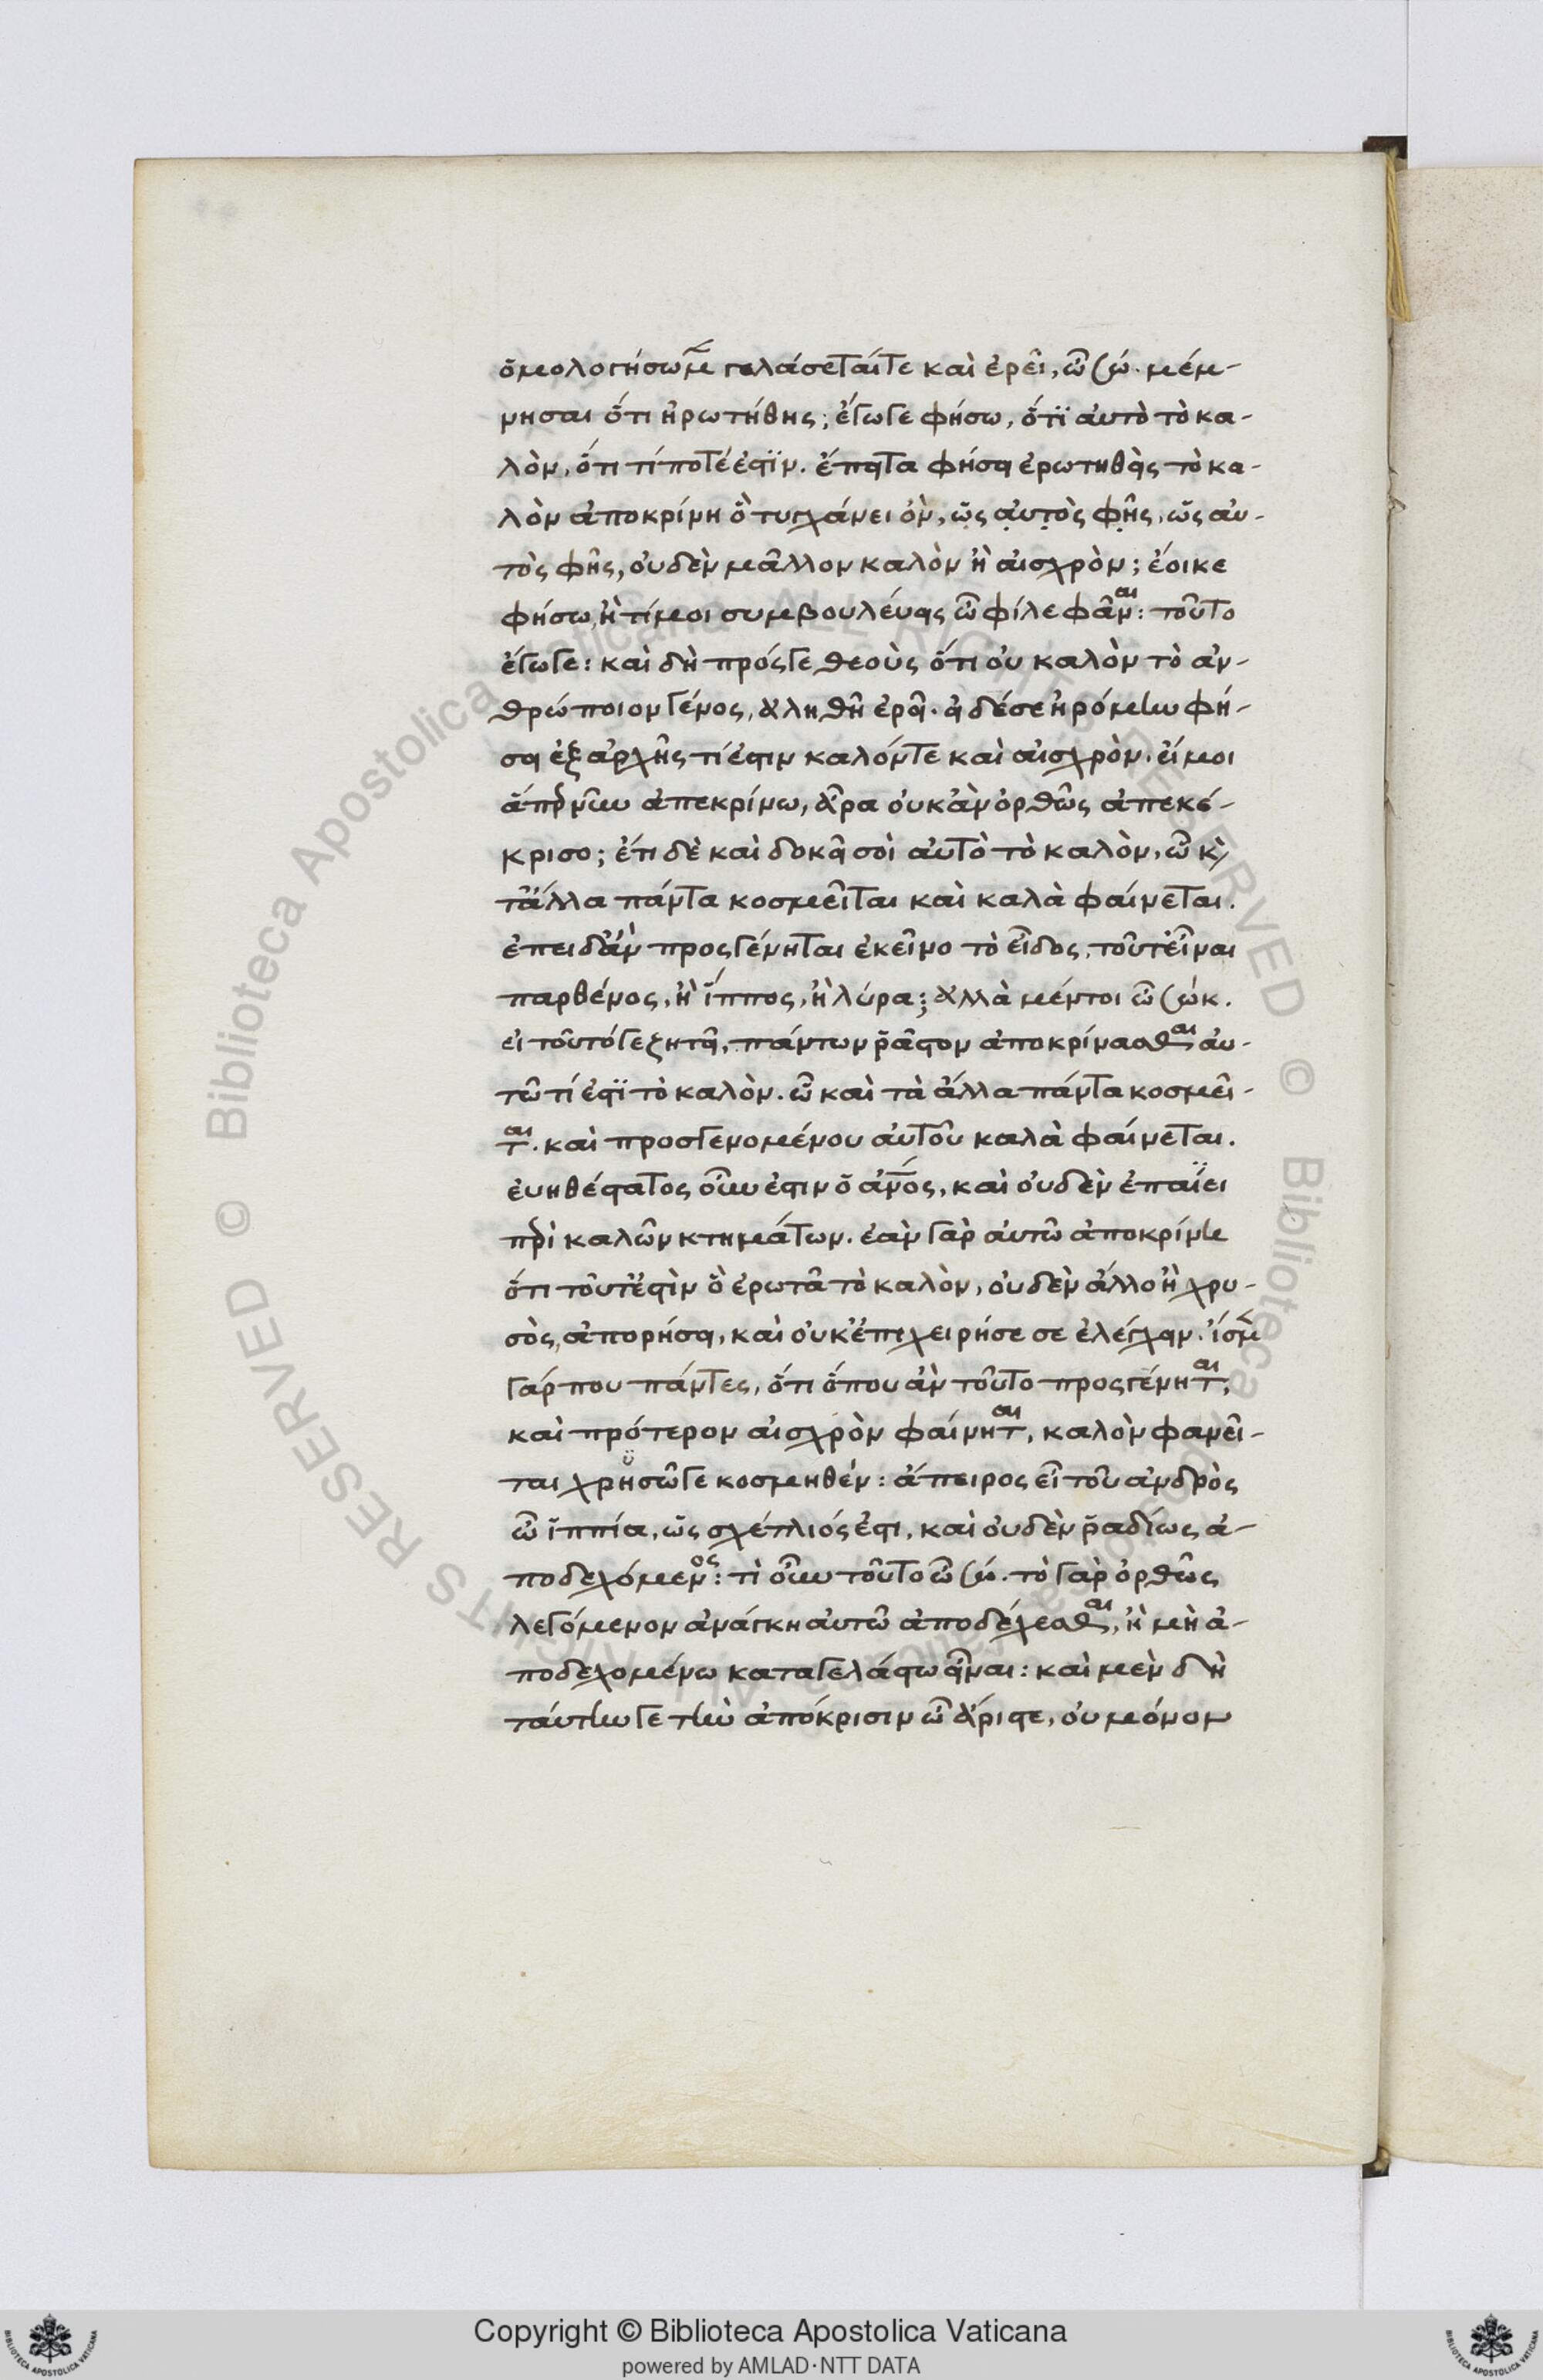 ὁμολογήσωμεν γελάσεταί τε καὶ ἐρεῖ, ὦ σώ. μέμ-
νησαι ὅτι ἠρωτήθης; ἔγωγε φήσω, ὅτι αὐτὸ τὸ κα-
λὸν, ὅτι τί ποτέ ἐστιν. ἔπειτα φήσει ἐρωτηθεὶς τὸ κα-
λὸν ἀποκρίνη ὃ τυγχάνει ὂν, ὡς αὐτὸς φῂς, ὡς αὐ-
τὸς φῂς, οὐδὲν μᾶλλον καλὸν ἢ αἰσχρὸν; ἔοικε
φήσω, ἢ τί μοι συμβουλεύεις ὦ φίλε φάναι: τοῦτο
ἔγωγε: καὶ δὴ πρός γε θεοὺς ὅτι οὐ καλὸν τὸ ἀν-
θρώποιον γένος, ἀληθῆ ἐρεῖ. εἰ δέ σε ἠρόμην φή-
σει ἐξ ἀρχῆς τί ἐστιν καλόν τε καὶ αἰσχρὸν. εἴ μοι
ἅπερ νῦν ἀπεκρίνω, ἆρα οὐκ ἂν ὀρθῶς ἀπεκέ-
κρισο; ἔτι δὲ καὶ δοκεῖ σοὶ αὐτὸ τὸ καλὸν, ὧ κ̀
τἄλλα πάντα κοσμεῖται καὶ καλὰ φαίνεται.
ἐπειδὰν προσγένηται ἐκεῖνο τὸ εἶδος, τοῦτ' εἶναι
παρθένος, ἢ ἵππος, ἢ λύρα; ἀλλὰ μέντοι ὦ σώκ.
εἰ τοῦτό γε ζητεῖ, πάντων ῥᾶστον ἀποκρίνασθαι αὐ-
τῶ τί ἐστι τὸ καλὸν. ὧ καὶ τὰ ἄλλα πάντα κοσμεῖ-
ται. καὶ προσγενομένου αὐτοῦ καλὰ φαίνεται.
εὐηθέστατος οὖν ἐστιν ὁ ἄνος, καὶ οὐδὲν ἐπαΐει
περὶ καλῶν κτημάτων. ἐὰν γὰρ αὐτῶ ἀποκρίνη
ὅτι τοῦτ' ἐστὶν ὃ ἐρωτᾶ τὸ καλὸν, οὐδὲν ἄλλο ἢ χρυ-
σὸς, ἀπορήσει, καὶ οὐκ ἐπιχειρήσε σε ἐλέγχειν. ἴσμεν
γάρ που πάντες, ὅτι ὅπου ἂν τοῦτο προσγένηται,
καὶ πρότερον αἰσχρὸν φαίνηται, καλὸν φανεῖ-
ται χρυσῶ γε κοσμηθέν: ἄπειρος εἶ τοῦ ἀνδρὸς
ὦ ἱππία, ὡς σχέτλιός ἐστι, καὶ οὐδὲν ῥαδίως ἀ-
ποδεχόμενος: τὶ οὖν τοῦτο ὦ σώ. τὸ γὰρ ὀρθῶς
λεγόμενον ἀνάγκη αὐτῶ ἀποδέχεσθαι, ἢ μὴ ἀ-
ποδεχομένω καταγελάστω εἶναι: καὶ μὲν δὴ
ταύτην γε τὴν ἀπόκρισιν ὦ ἄριστε, οὐ μόνον
Copyright © Biblioteca Apostolica Vaticana
powered by AMLAD·NTT DATA